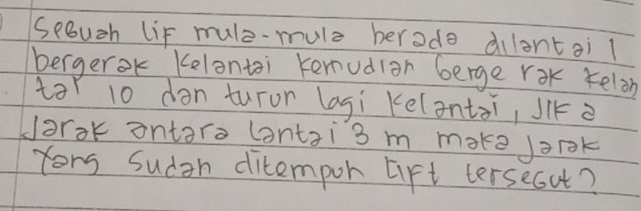 Sebuah lif mula-mula berada dilantai 1
bergerak Kelantai Kemudian berge rak Kelan
tai 10 dan turun lagi Kelantai, JIKa
Jarak antara lantai 3 m maka Jarak
Yang Sudah ditempuh lift tersebut?